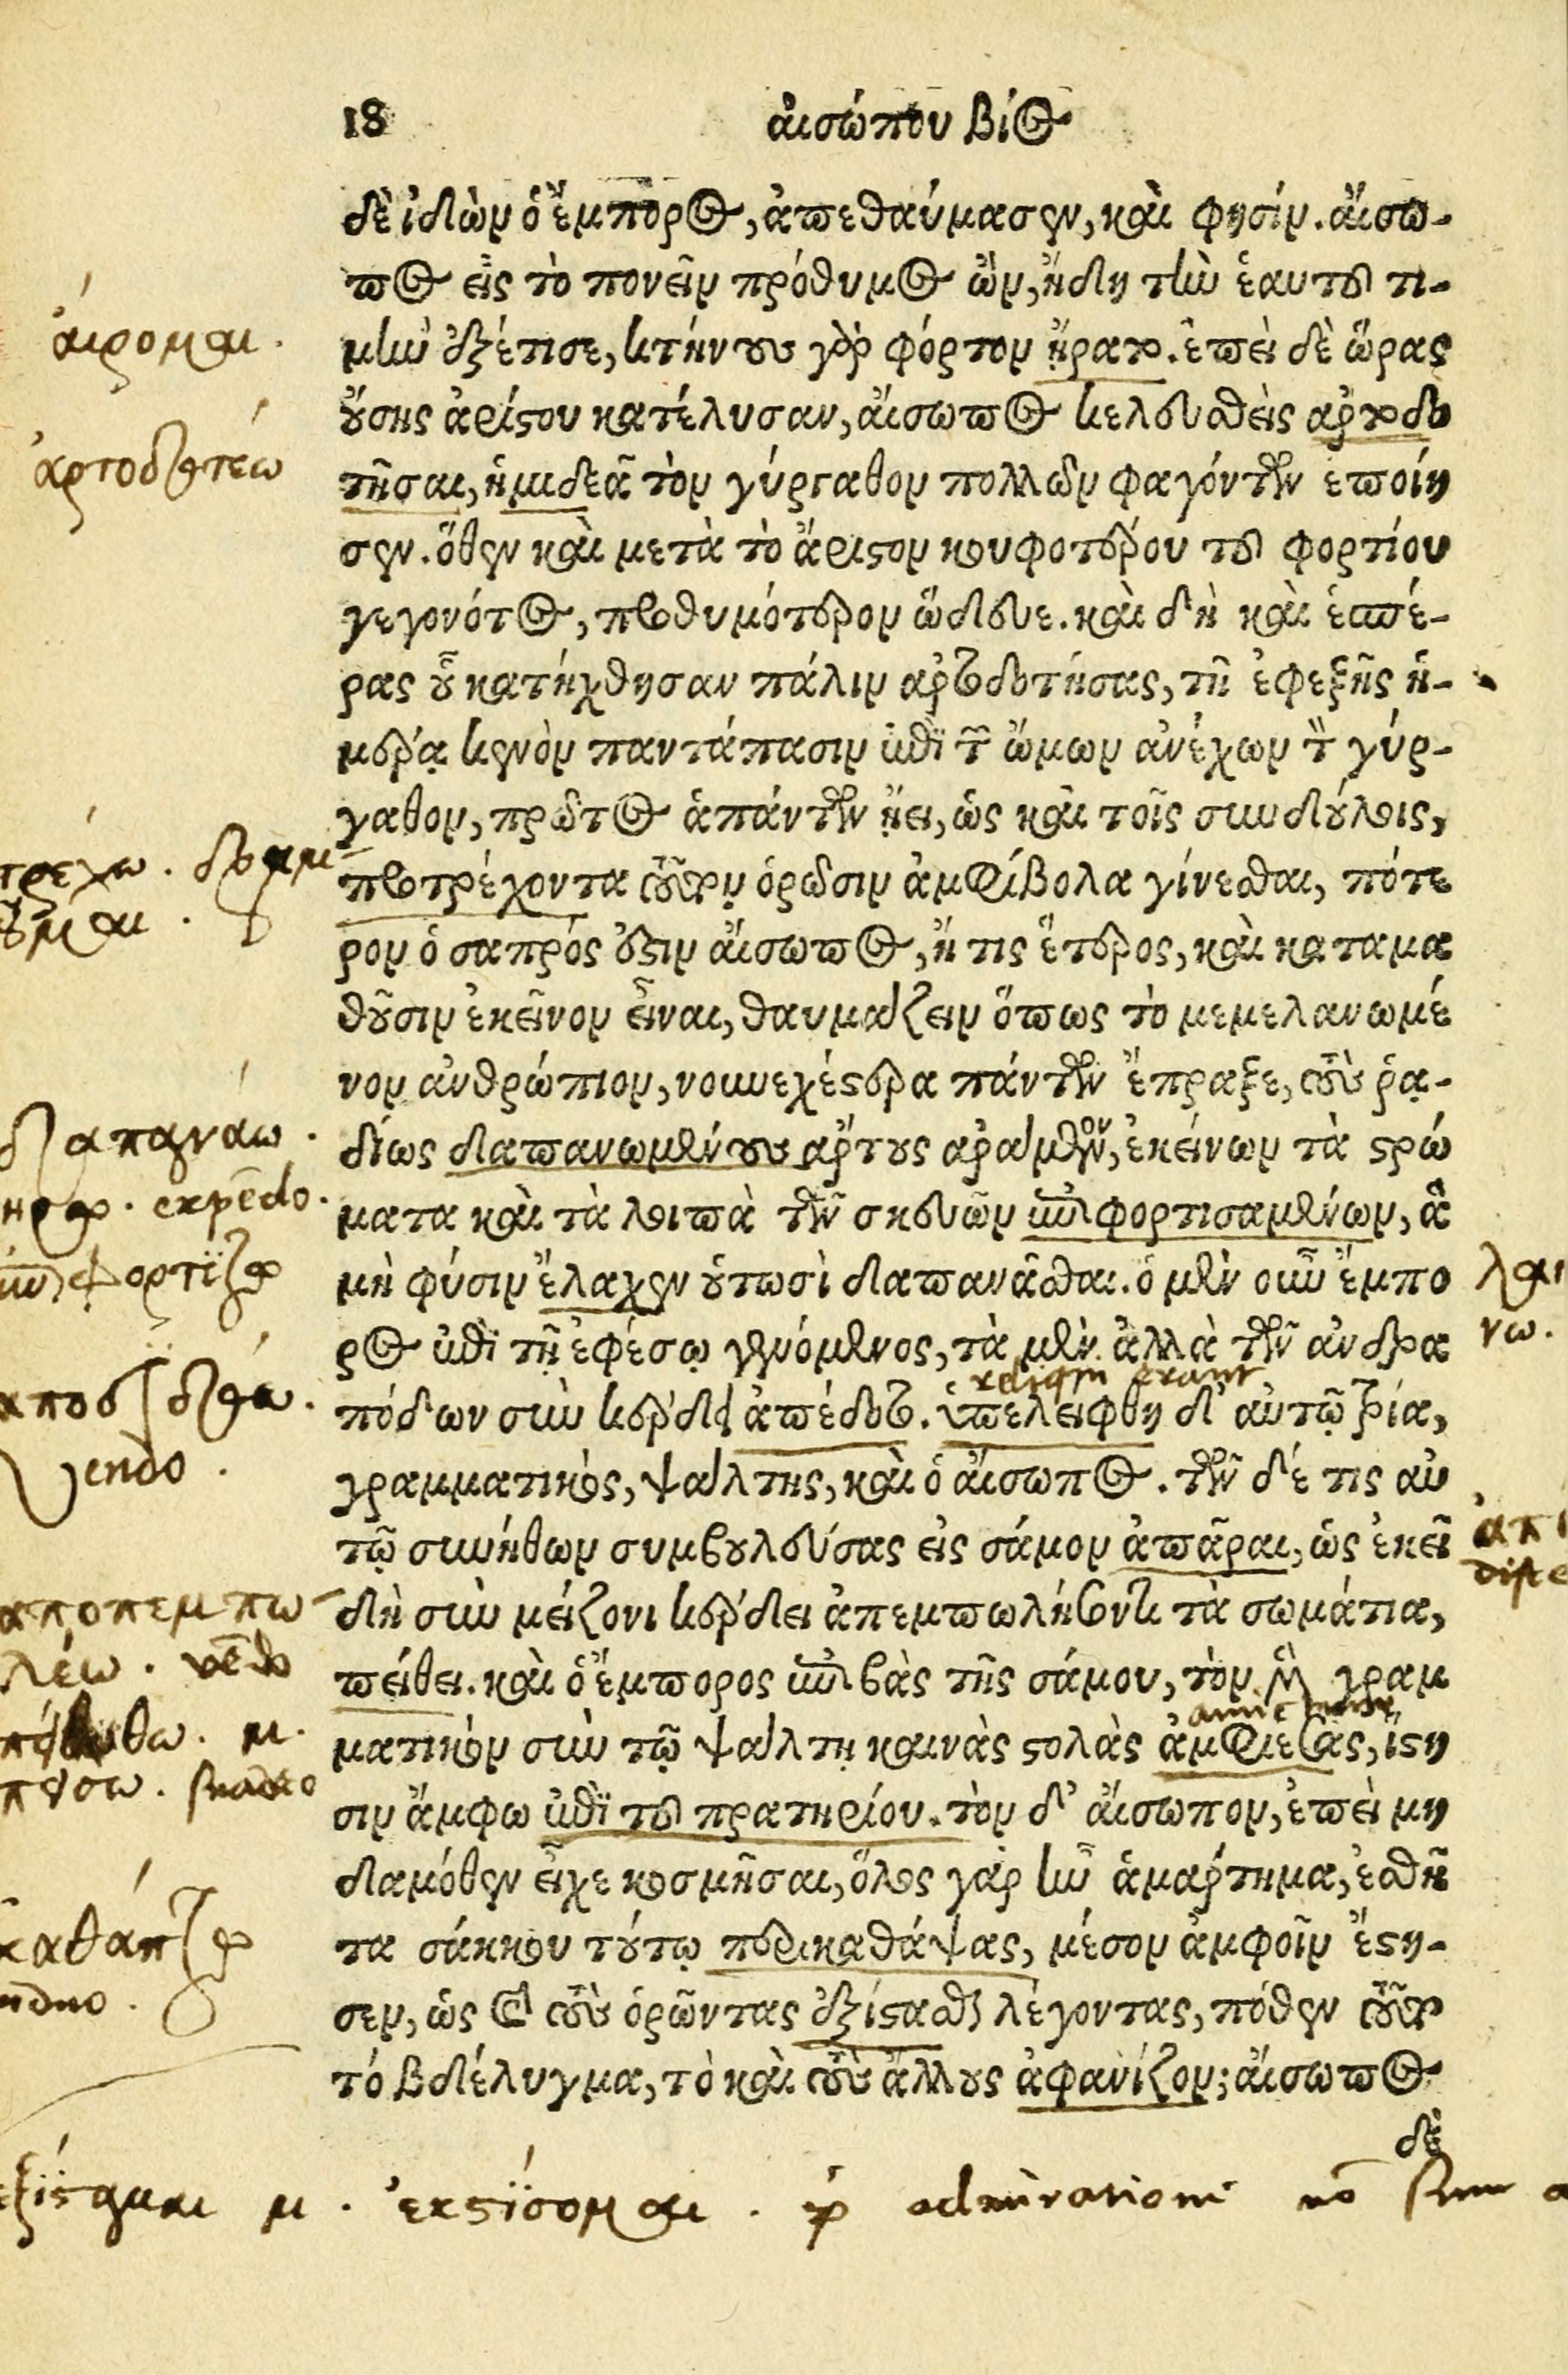 18 αἰσώπου βίος
δὲ ἰδὼν ὁ ἔμπορος, ἀπεθαύμασεν, καὶ φησίν. αἴσω-
πος εἰς τὸ πονεῖν πρόθυμος ὢν, ἤδη τὴν ἑαυτοῦ τι-
μὴν ἐξέτισε, κτήνους γὰρ φόρτον ᾔρατο. ἐπεὶ δὲ ὥρας
οὔσης ἀρίστου κατέλυσαν, αἴσωπος κελευσθεὶς ἀρτοδο
τῆσαι, ἡμιδεᾶ τὸν γύργαθον πολλῶν φαγόντων ἐποίη
σεν. ὅθεν καὶ μετὰ τὸ ἄριστον κουφοτέρου τοῦ φορτίου
γεγονότος, προθυμότερον ὥδευε. καὶ δὴ καὶ ἑσπέ-
ρας οὗ κατήχθησαν πάλιν ἀρτοδοτήσας, τῇ ἐφεξῆς ἡ-
μέρᾳ κενὸν παντάπασιν ἐπὶ τῶν ὤμων ἀνέχων τὸν γύρ-
γαθον, πρῶτος ἁπάντων ᾔει, ὡς καὶ τοῖς συνδούλοις,
προτρέχοντα τοῦτον ὁρῶσιν ἀμφίβολα γίνεσθαι, πότε
ρον ὁ σαπρός ἐστιν αἴσωπος, ἤ τις ἕτερος, καὶ καταμα
θοῦσιν ἐκεῖνον εἶναι, θαυμάζειν ὅπως τὸ μεμελανωμέ
νον ἀνθρώπιον, νουνεχέστερα πάντων ἔπραξε, τοὺς ῥᾳ-
δίως δαπανωμένους ἄρτους ἀράμενον, ἐκείνων τὰ στρώ
ματα καὶ τὰ λοιπὰ τῶν σκευῶν ἐπιφορτισαμένων, ἃ
μὴ φύσιν ἔλαχεν οὑτωσὶ δαπανᾶσθαι. ὁ μὲν οὖν ἔμπο
ρος ἐπὶ τῇ ἐφέσῳ γενόμενος, τὰ μὲν ἄλλα τῶν ἀνδρα
πόδων σὺν κέρδει ἀπέδοτο. ὑπελείφθη δ' αὐτῷ τρία,
γραμματικὸς, ψάλτης, καὶ ὁ αἴσωπος. τῶν δέ τις αὐ
τῷ συνήθων συμβουλεύσας εἰς σάμον ἀπᾶραι, ὡς ἐκεῖ
δὴ σὺν μείζονι κέρδει ἀπεμπωλήσοντι τὰ σωμάτια,
πείθει. καὶ ὁ ἔμπορος ἐπιβὰς τῆς σάμου, τὸν μὲν γραμ
ματικὸν σὺν τῷ ψάλτῃ καινὰς στολὰς ἀμφιέσας, ἵστη
σιν ἄμφω ἐπὶ τοῦ πρατηρίου. τὸν δ' αἴσωπον, ἐπεὶ μη
δαμόθεν εἶχε κοσμῆσαι, ὅλος γὰρ ἦν ἁμάρτημα, ἐσθῆ
τα σάκκου τούτῳ περικαθάψας, μέσον ἀμφοῖν ἔστη-
σεν, ὡς καὶ τοὺς ὁρῶντας ἐξίστασθαι λέγοντας, πόθεν τοῦτο
τὸ βδέλυγμα, τὸ καὶ τοὺς ἄλλους ἀφανίζον; αἴσωπος
δὲ
αἴρομαι.
ἀρτοδοτέω
τρέχω.
δαπανάω.
expēdo.
φορτίζω
vendo.
λέω. vēdo
suadeo